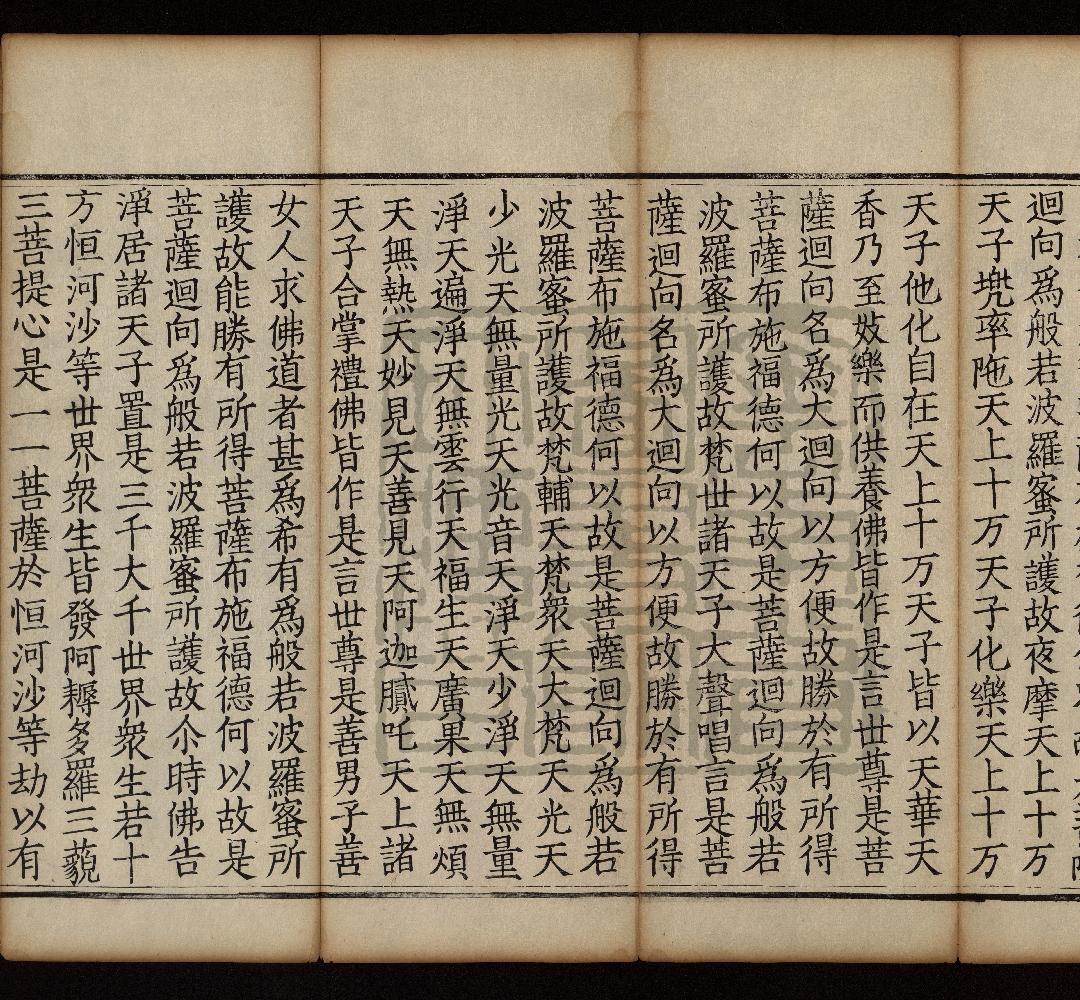 迴向爲般若波羅蜜所護故夜摩天上十万
天子兠率陁天上十万天子化樂天上十万
天子他化自在天上十万天子皆以天華天
香乃至妓樂而供養佛皆作是言世尊是菩
薩迴向名爲大迴向以方便故勝於有所得
菩薩布施福德何以故是菩薩迴向爲般若
波羅蜜所護故梵世諸天子大聲唱言是菩
薩迴向名爲大迴向以方便故勝於有所得
菩薩布施福德何以故是菩薩迴向爲般若
波羅蜜所護故梵輔天梵衆天大梵天光天
少光天無量光天光音天淨天少淨天無量
淨天遍淨天無雲行天福生天廣果天無煩
天無熱天妙見天善見天阿迦膩吒天上諸
天子合掌禮佛皆作是言世尊是善男子善
女人求佛道者甚爲希有爲般若波羅蜜所
護故能勝有所得菩薩布施福德何以故是
菩薩迴向爲般若波羅蜜所護故尒時佛告
淨居諸天子置是三千大千世界衆生若十
方恒河沙等世界衆生皆發阿耨多羅三藐
三菩提心是一一菩薩於恒河沙等劫以有